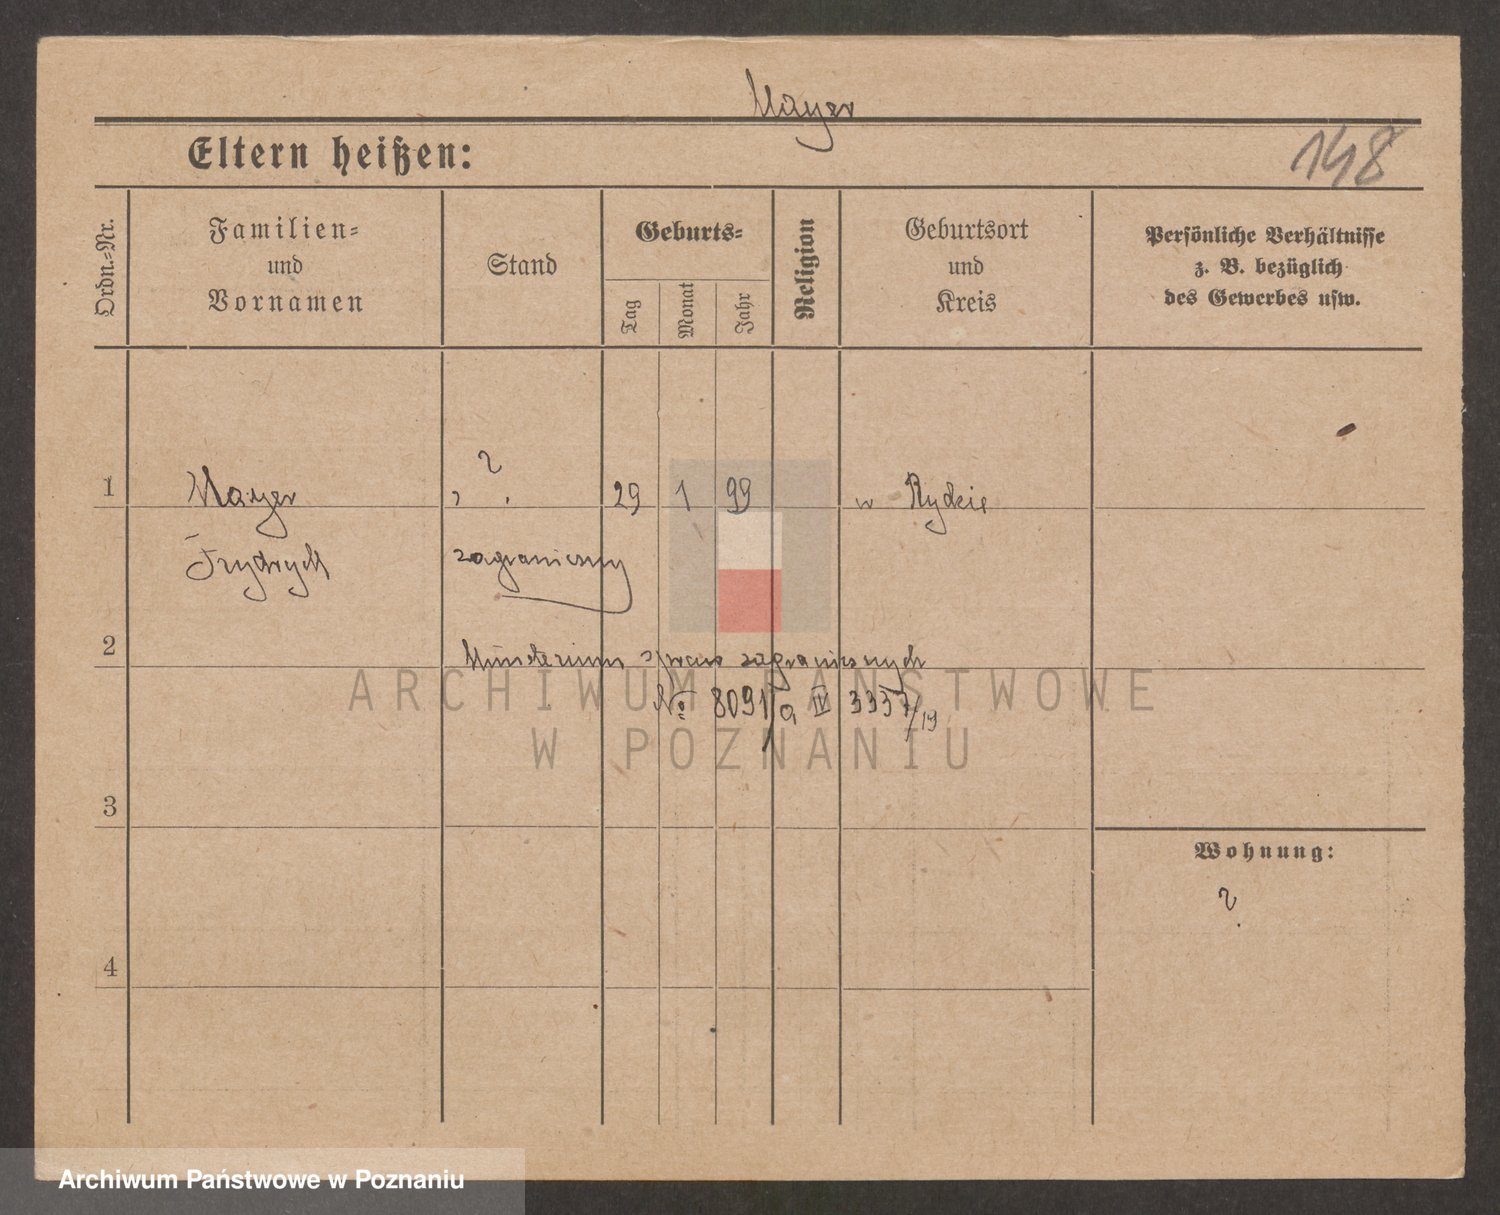 Mayer
Eltern heißen:
148
Ordn.-Nr.
Familien-
und
Vornamen
Stand
Geburts-
Tag
Monat
Jahr
Religion
Geburtsort
und
Kreis
Persönliche Verhältnisse
z. B. bezüglich
des Gewerbes usw.
?
1 Mayer 29 1 99 w Rydzie
Frydrych zagraniczny
2
Ministerium spraw zagranicznych
№ 8091/a IV 3337/19
ARCHIWUM PAŃSTWOWE
W POZNANIU
3
Wohnung:
?
4
Archiwum Państwowe w Poznaniu